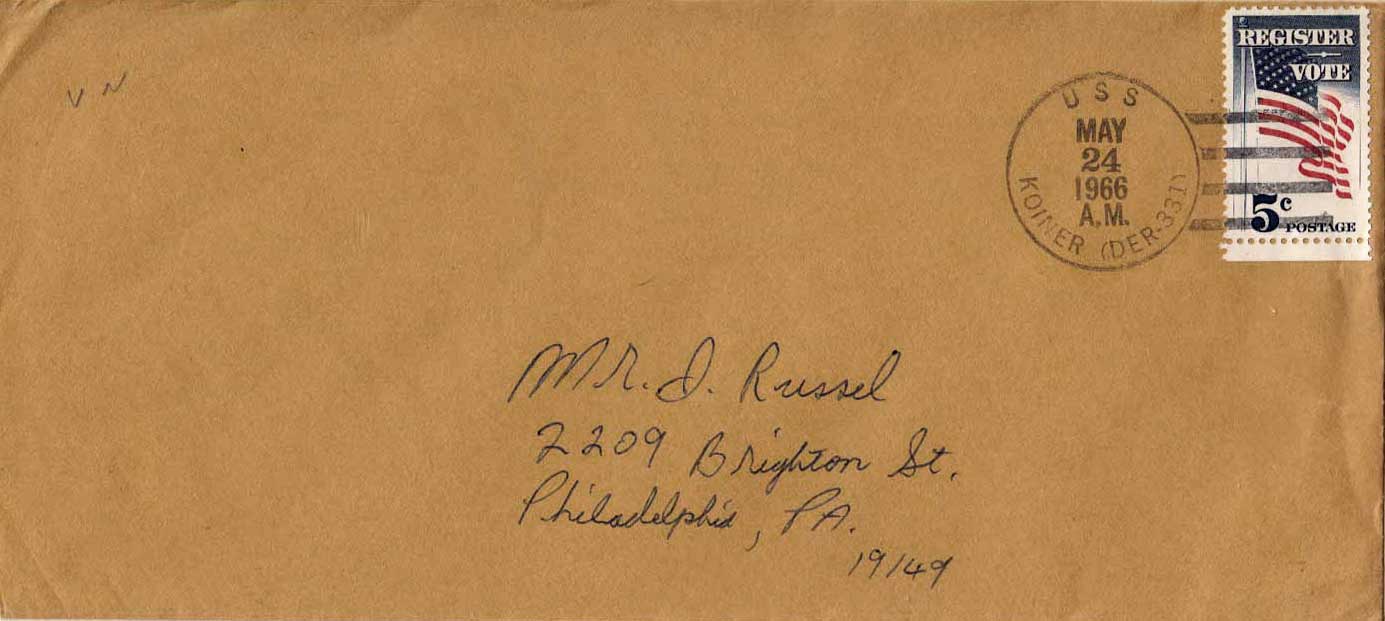 V N
REGISTER
VOTE
5c POSTAGE
USS
MAY
24
1966
A.M.
KOINER (DER-331)
Mr. D. Russel
2209 Brighton St.
Philadelphia, PA.
19149